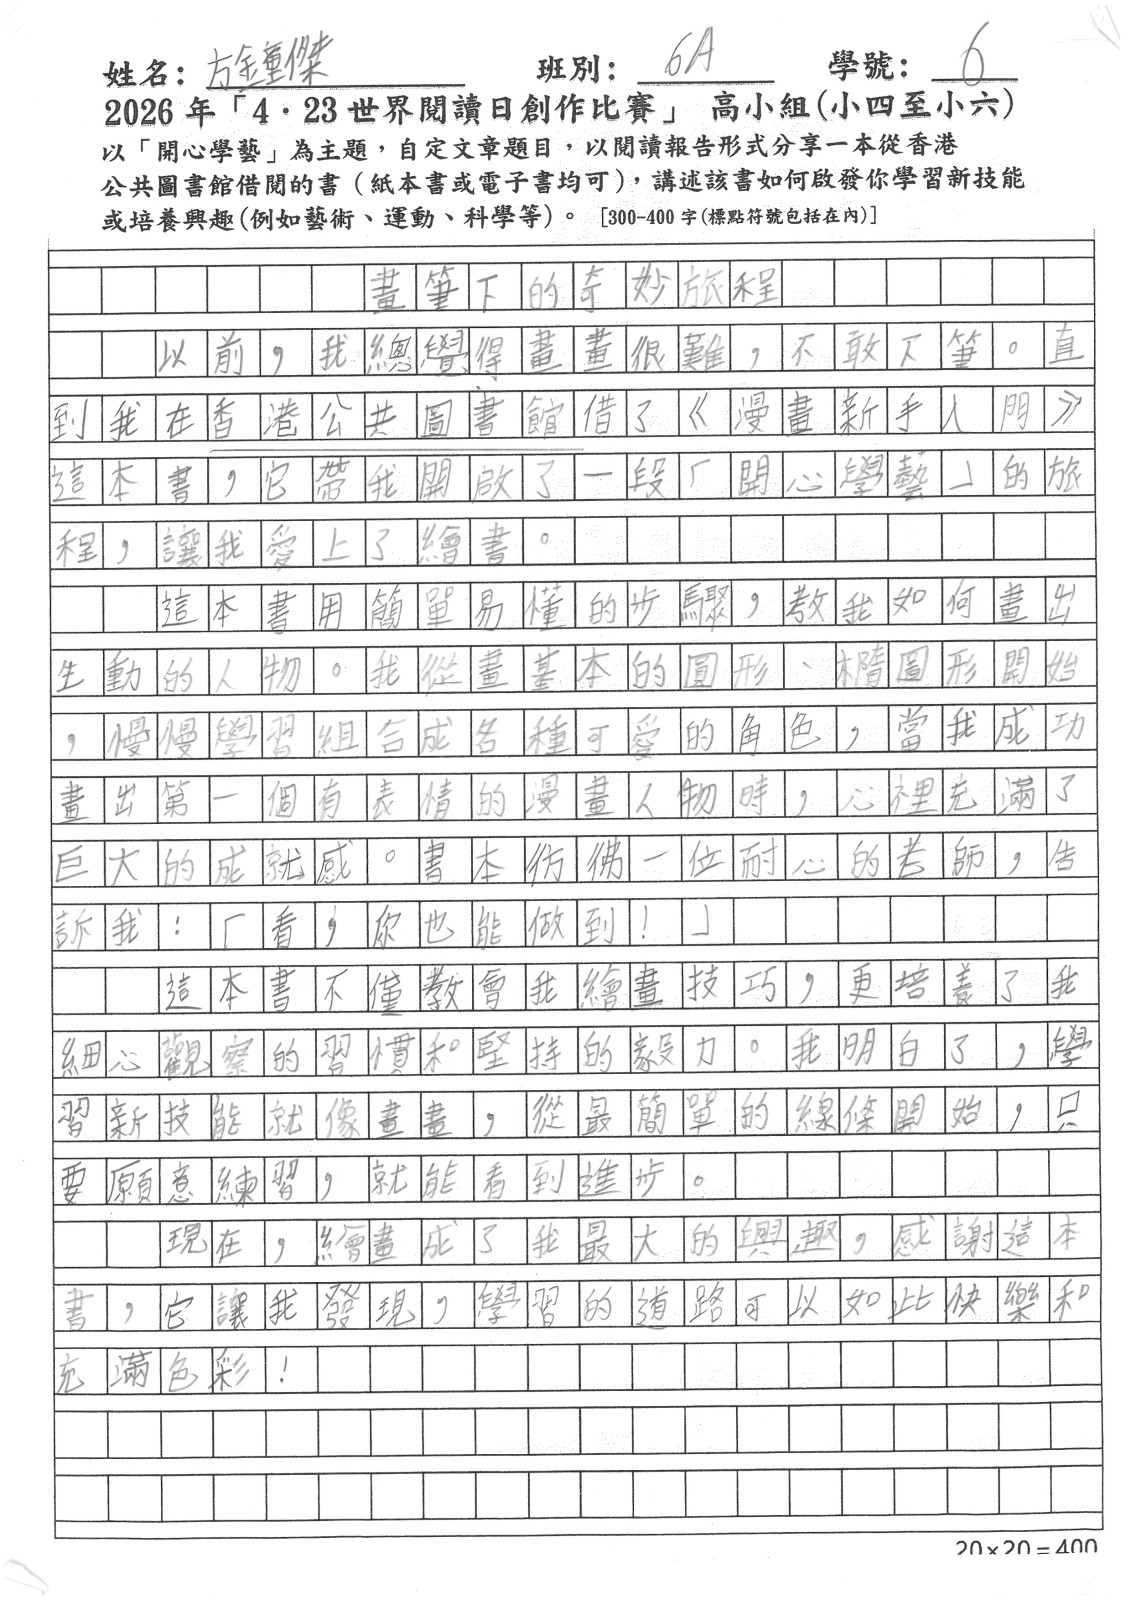 姓名：方鍾傑 班別：6A 學號：6
2026年「4·23世界閱讀日創作比賽」 高小組(小四至小六)
以「開心學藝」為主題，自定文章題目，以閱讀報告形式分享一本從香港
公共圖書館借閱的書（紙本書或電子書均可），講述該書如何啟發你學習新技能
或培養興趣(例如藝術、運動、科學等)。 [300-400字(標點符號包括在內)]
畫筆下的奇妙旅程
以前，我總覺得畫畫很難，不敢下筆。直
到我在香港公共圖書館借了《漫畫新手入門》
這本書，它帶我開啟了一段「開心學藝」的旅
程，讓我愛上了繪書。
這本書用簡單易懂的步驟，教我如何畫出
生動的人物。我從畫基本的圓形、橢圓形開始
，慢慢學習組合成各種可愛的角色，當我成功
畫出第一個有表情的漫畫人物時，心裡充滿了
巨大的成就感。書本彷彿一位耐心的老師，告
訴我：「看，你也能做到！」
這本書不僅教會我繪畫技巧，更培養了我
細心觀察的習慣和堅持的毅力。我明白了，學
習新技能就像畫畫，從最簡單的線條開始，只
要願意練習，就能看到進步。
現在，繪畫成了我最大的興趣，感謝這本
書，它讓我發現，學習的道路可以如此快樂和
充滿色彩！
20×20=400